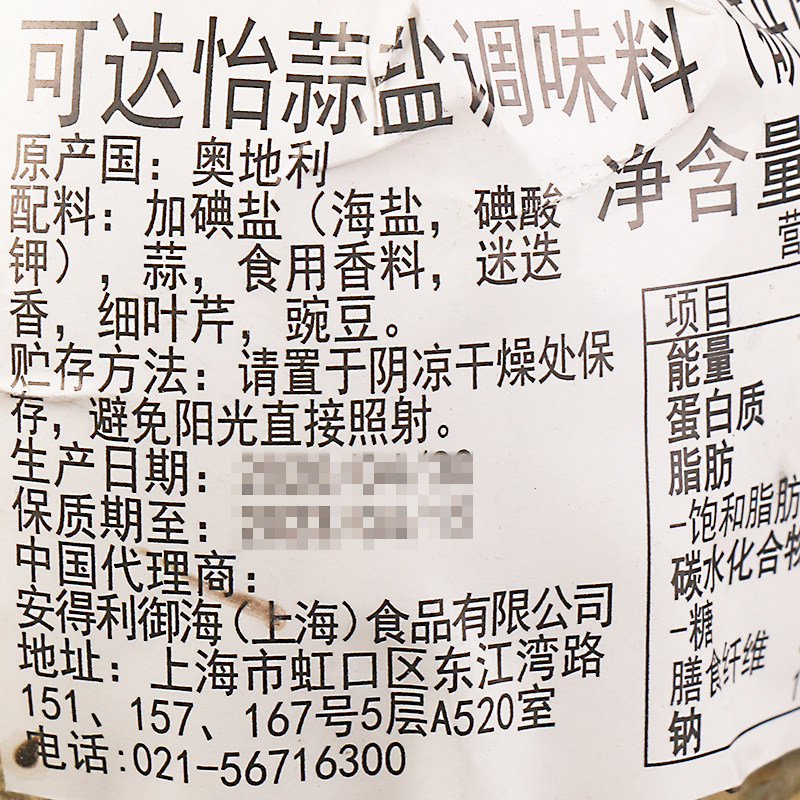 可达怡蒜盐调味料
原产国：奥地利
配料：加碘盐（海盐，碘酸
钾），蒜，食用香料，迷迭
香，细叶芹，豌豆。
贮存方法：请置于阴凉干燥处保
存，避免阳光直接照射。
生产日期：
保质期至：
中国代理商：
安得利御海(上海)食品有限公司
地址：上海市虹口区东江湾路
151、157、167号5层A520室
电话:021-56716300
净含量
营
项目
能量
蛋白质
脂肪
-饱和脂肪
碳水化合物
-糖
膳食纤维
钠